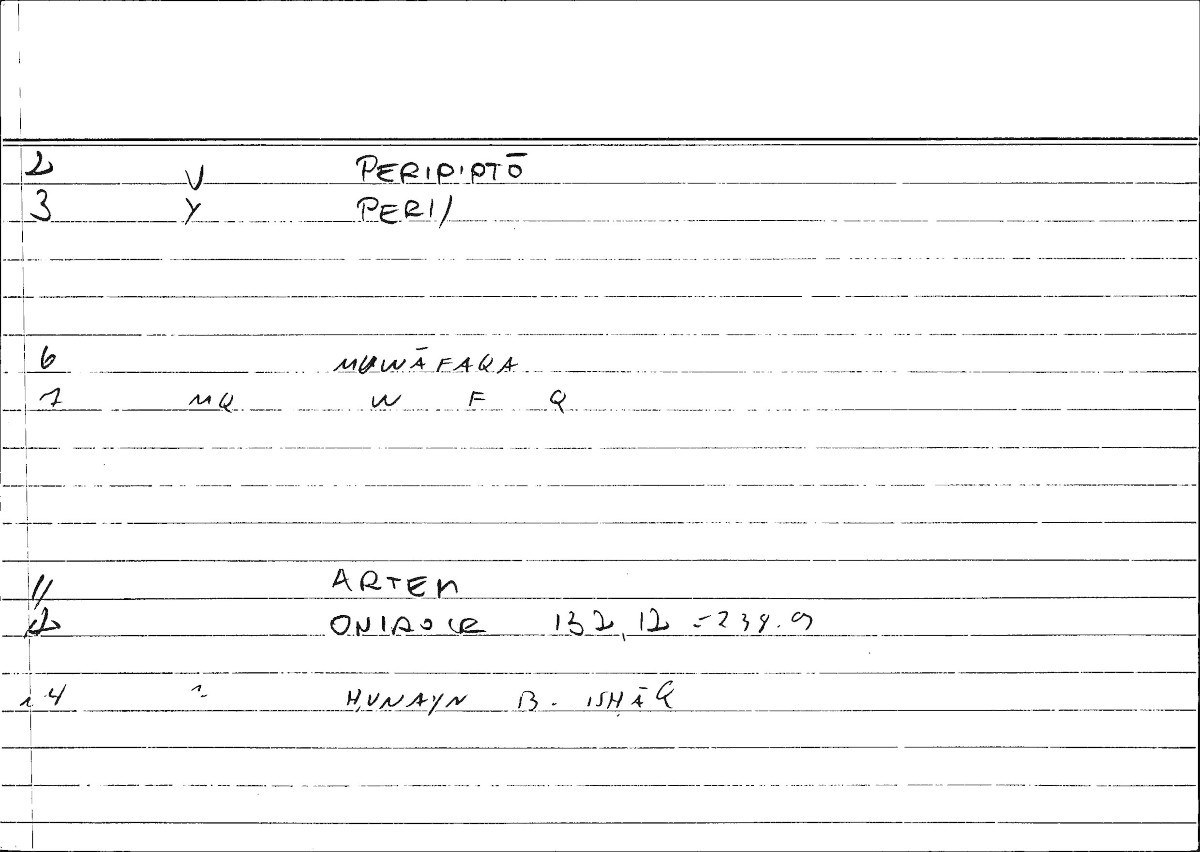 2 V PERIPIPTŌ
3 Y PERI/
6 MUWĀFAQA
7 MQ W F Q
11 ARTEM
12 ONIROCR 132,12 =239.9
14 2 ḤUNAYN B. ISḤĀQ